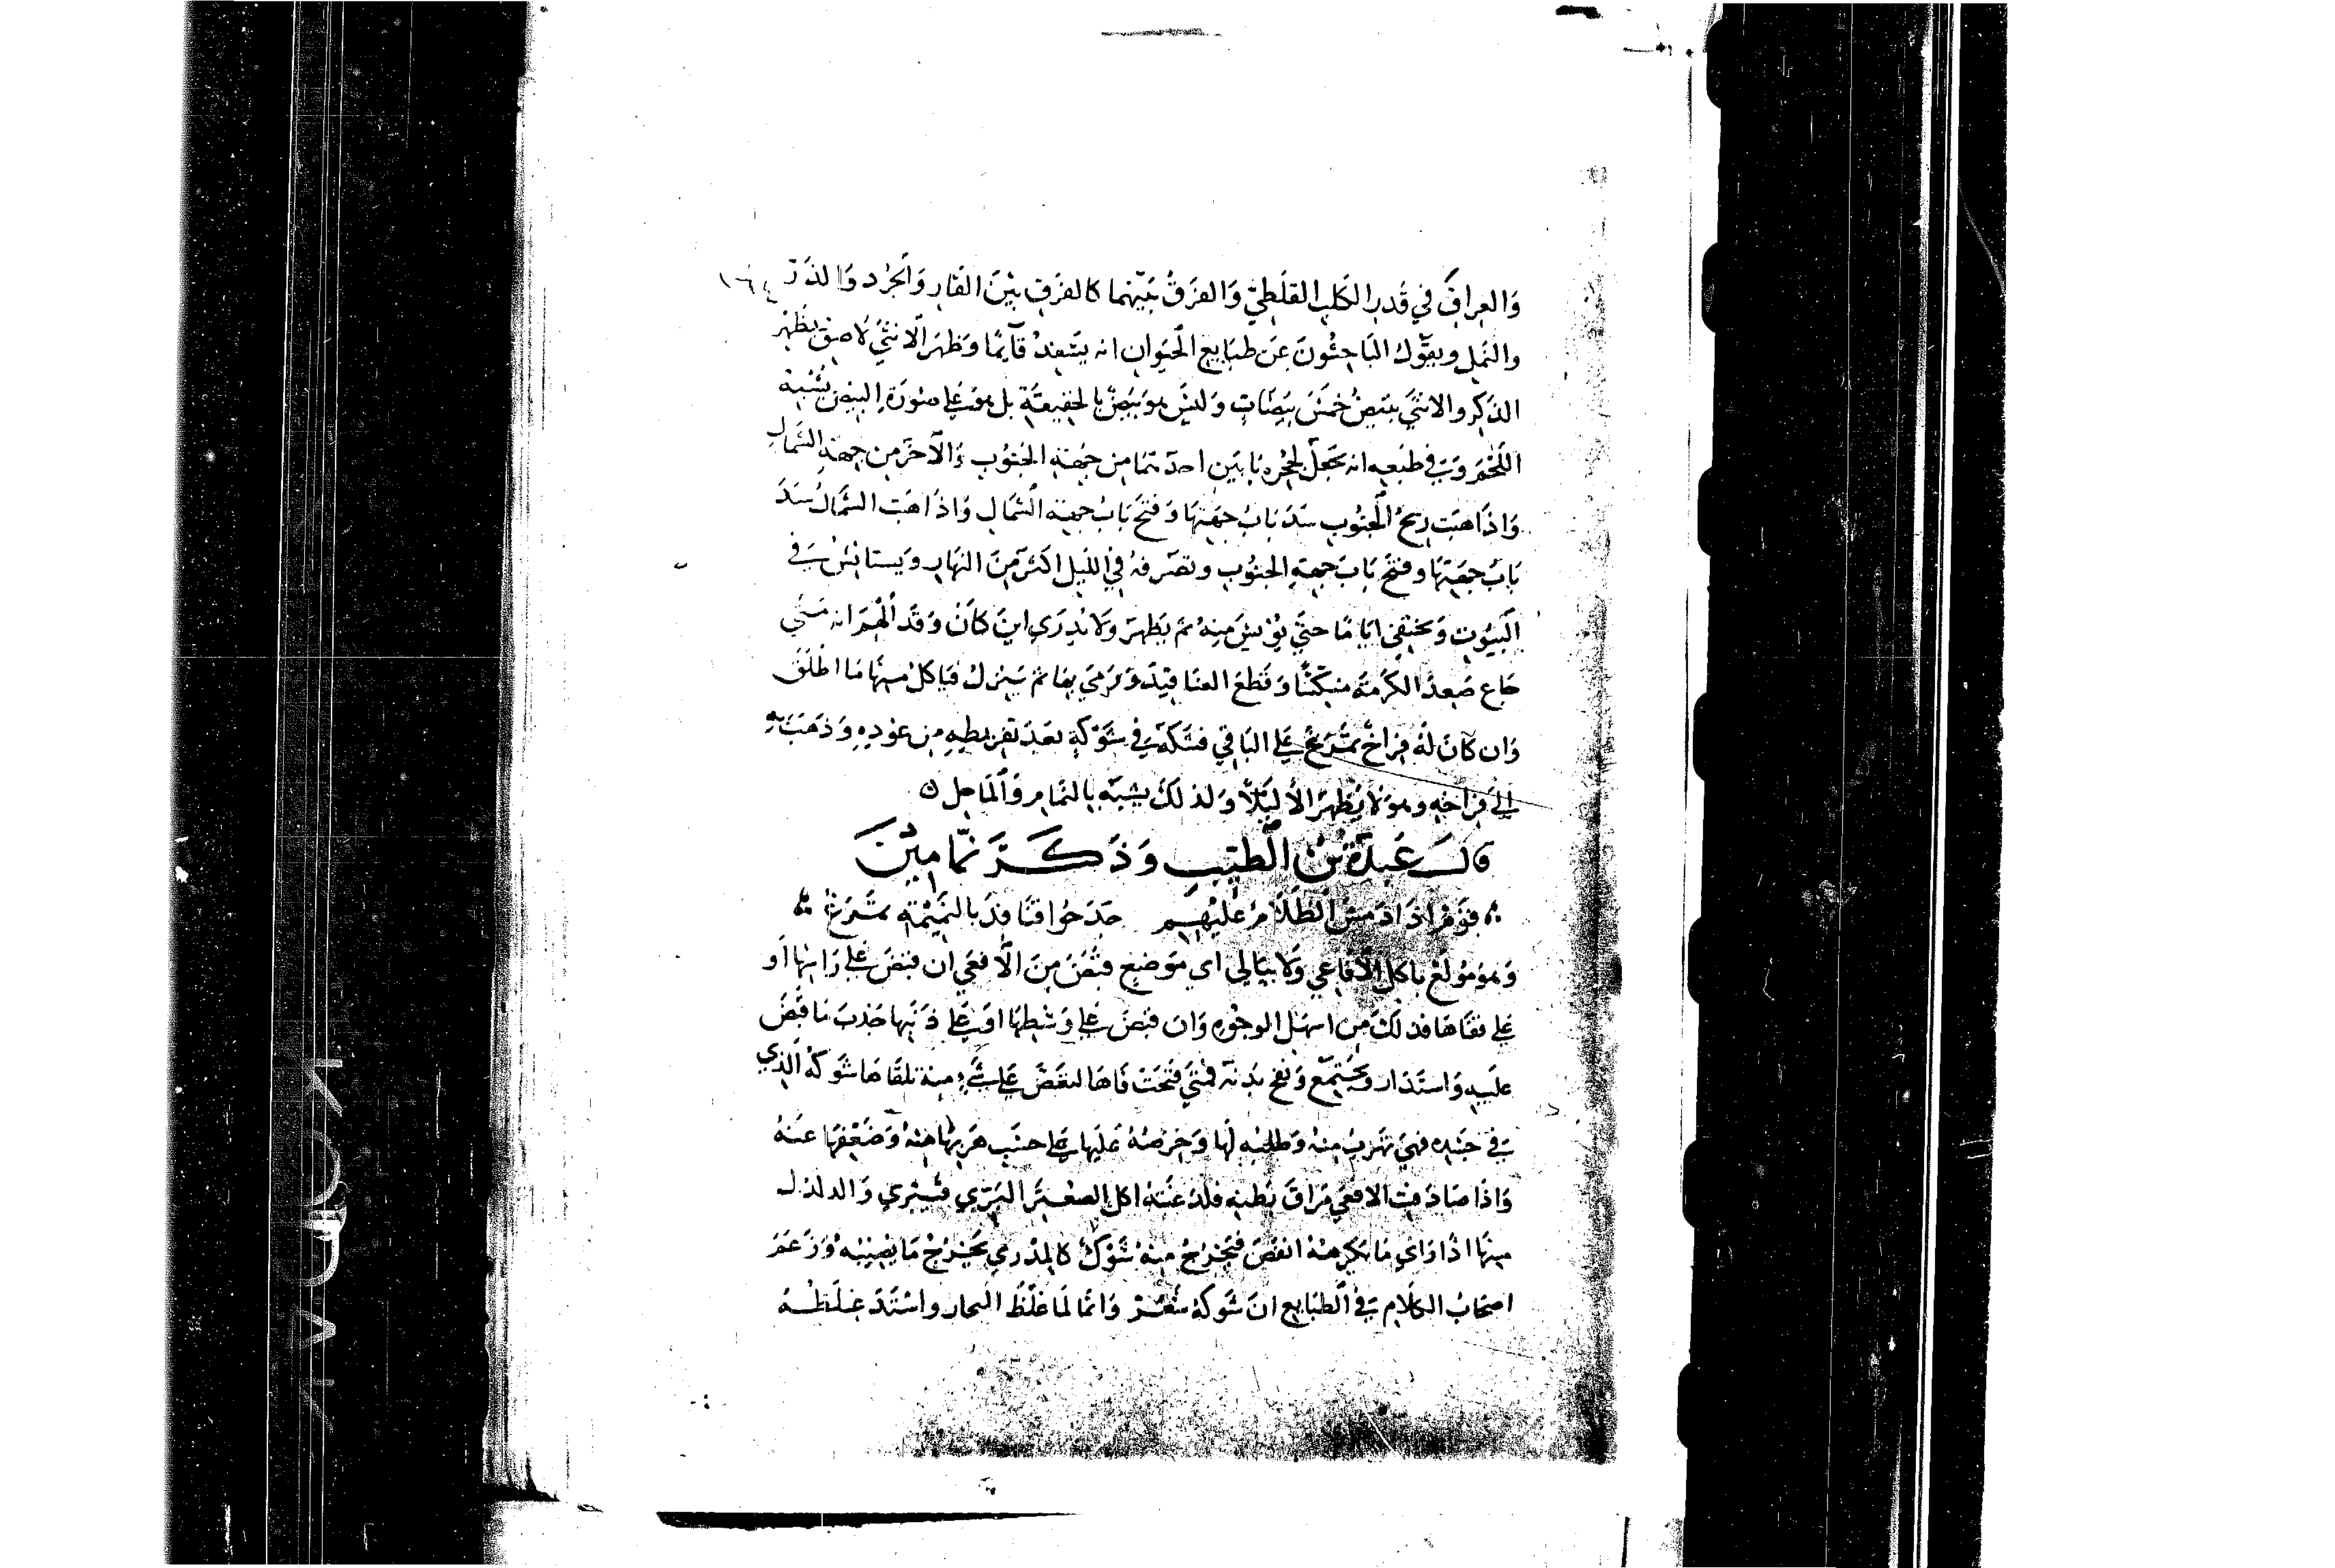 وَالعِراقِ في قَدرِ الكَلبِ القَلَطِيّ وَالفَرقُ بَينهما كالفَرقِ بَيْنَ الفَارِ وَالجُرَدِ وَالذَرّ ١٦٤
والنَملِ ويقُولُ البَاحِثُونَ عَن طبَايِع الحَيَوانِ انه يَسْفِدُ قآيمًا وَظهَرَ الانثَى لاَصِق بظَهْر
الذَكرِ والانثَى تبيضُ خَمْسَ بَيضَاتٍ وَليسَ هو بَيضٌ بالحقيقَةِ بل هُوَ عَلى صُورَةِ البَيض يُشبهُ
اللَحْمَ وَفي طبْعِهِ انه يَجعَل لجُحْرهِ بَابَين احدهمَا مِن جِهَةِ الجَنُوب وَالآخَر مِن جِهةِ الشمَالِ
وَاذَا هَبَت رِيحُ الجنُوبِ سَدَ بَابُ جِهَتِهَا وَفتحَ بَابُ جِهَةِ الشمَالِ وَاذَا هَبَت الشمَالُ سَدَ
بَابُ جِهَتِهَا وفتحَ بَابَ جهَةِ الجنُوبِ وتصَرفهُ في اللَيل اكثَر مِنَ النهَارِ وَيستَانِسُ في
البُيُوتِ وَيختَفِى ايَامًا حتىَ يُؤْيسَ مِنهُ ثم يَظهرَ وَلا يُدرَي اينَ كَانَ وَقَد اُلهِمَ انه مَتَى
جَاعَ صَعِدَ الكَرْمَةَ منكسًا وَقطعَ العنَاقِيدَ وَيَرمي بهَا ثم يَنزلُ فيَاكلُ مِنهَا مَا اطَلقَ
وَان كانَ لَهُ فِراخٌ تَمَرغ عَلى البَاقي فشَكه في شَوْكِهِ بَعدَ تفريطِهِ مِن عُودِهِ وَذهَبَ بِهِ
اِلىَ فِراخِهِ وهوَ لا يَظهرَ الاَّ لَيلاً وَلذلكَ يشبَّه بالنمَامِ وَالمَاحِل ه
قالَ عَبدَةُ بْنُ الطَبيب وَذكَرَ نمّامِيْنَ
قَومٌ اِذَا دَمَسَ الظَلَامُ عَلَيهِم حَدَجُوا قنَافِذَ بالنَمِيْمَةِ تمْرَغُ
وَهوَ مُولَع باكلِ الاَفَاعِي وَلا يبَالي اي مَوضِعٍ قبَضَ مِنَ الاَفعَى ان قبَضَ عَلى رَاسِهَا اَو
عَلى قفَاهَا فذلكَ مِن اسهَل الوجُوهِ وَان قبَضَ عَلى وَسَطِهَا اوَ عَلى ذنَبِهَا جَذبَ مَا قبَضَ
علَيهِ وَاستَدَارَ وَتجَمَّع وَنفخ بَدنَه فمَتىَ فتَحَت فَاهَا لتَقبضَ عَلى شَيءٍ مِنهُ تلقَاهَا شَوكهُ الَذِي
في جِلدِهِ فهيَ تهرَبُ مِنهُ وَطَلبُهُ لَهَا وَحِرصُهُ عَلَيهَا عَلى حسَبِ هَرَبِهَا مِنهُ وَضَعْفِهَا عَنهُ
وَاذَا صَادَفت الافعَي مَرَاقّ بَطنهِ فلدغَتهُ اكلَ الصعْتَر البَرّي فيَبْري وَالدلدُل
مِنهَا اذَا رَايَ مَا يكرهُهُ انقبَضَ فيَخرُجُ مِنهُ شَوْكٌ كالمِدْرِي يَجرَحُ مَا يُصِيبُهُ وَزَعَمَ
اصحَابُ الكَلَامِ في الطبَايِعِ انَ شَوكَهُ شَعْر وَانما لمَا غَلُظَ البخار واشتَدَ غِلَظُهُ